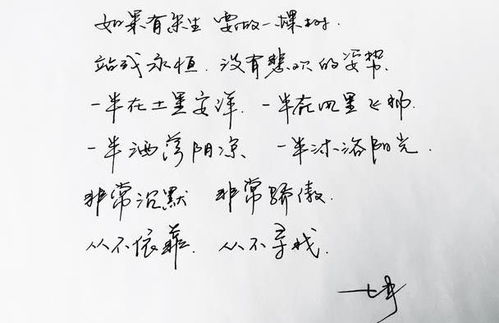 如果有来生 要做一棵树.
站成永恒. 没有悲欢的姿势.
一半在土里安详. 一半在风里飞扬.
一半洒落阴凉 一半沐浴阳光.
非常沉默 非常骄傲.
从不依靠. 从不寻找.